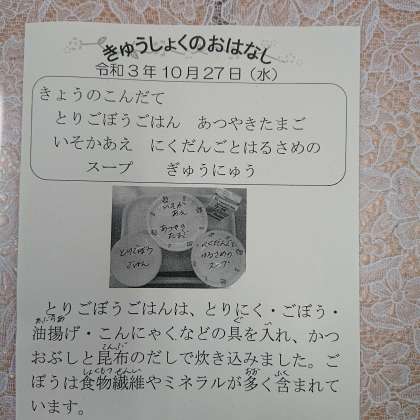 きゅうしょくのおはなし
令和3年10月27日（水）
きょうのこんだて
とりごぼうごはん　あつやきたまご
いそかあえ　にくだんごとはるさめの
スープ　ぎゅうにゅう
いそか
あえ
あつやき
たまご
とりごぼう
ごはん
にくだんごと
はるさめの
スープ
とりごぼうごはんは、とりにく・ごぼう・
油揚げ・こんにゃくなどの具を入れ、かつ
おぶしと昆布のだしで炊き込みました。ご
ぼうは食物繊維やミネラルが多く含まれて
います。